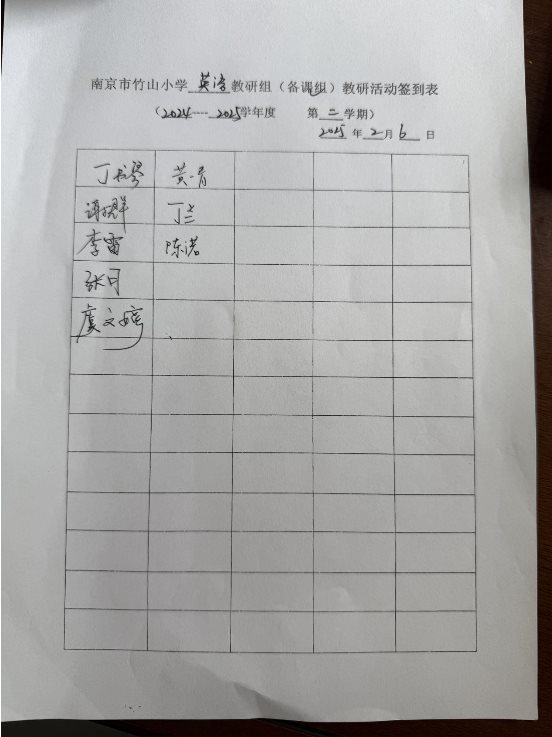 南京市竹山小学 英语 教研组（备课组）教研活动签到表
（2024----2025学年度 第 二 学期）
2025 年 2 月 6 日
黄
丁兰
李雷 陈诺
张月
虞文婷